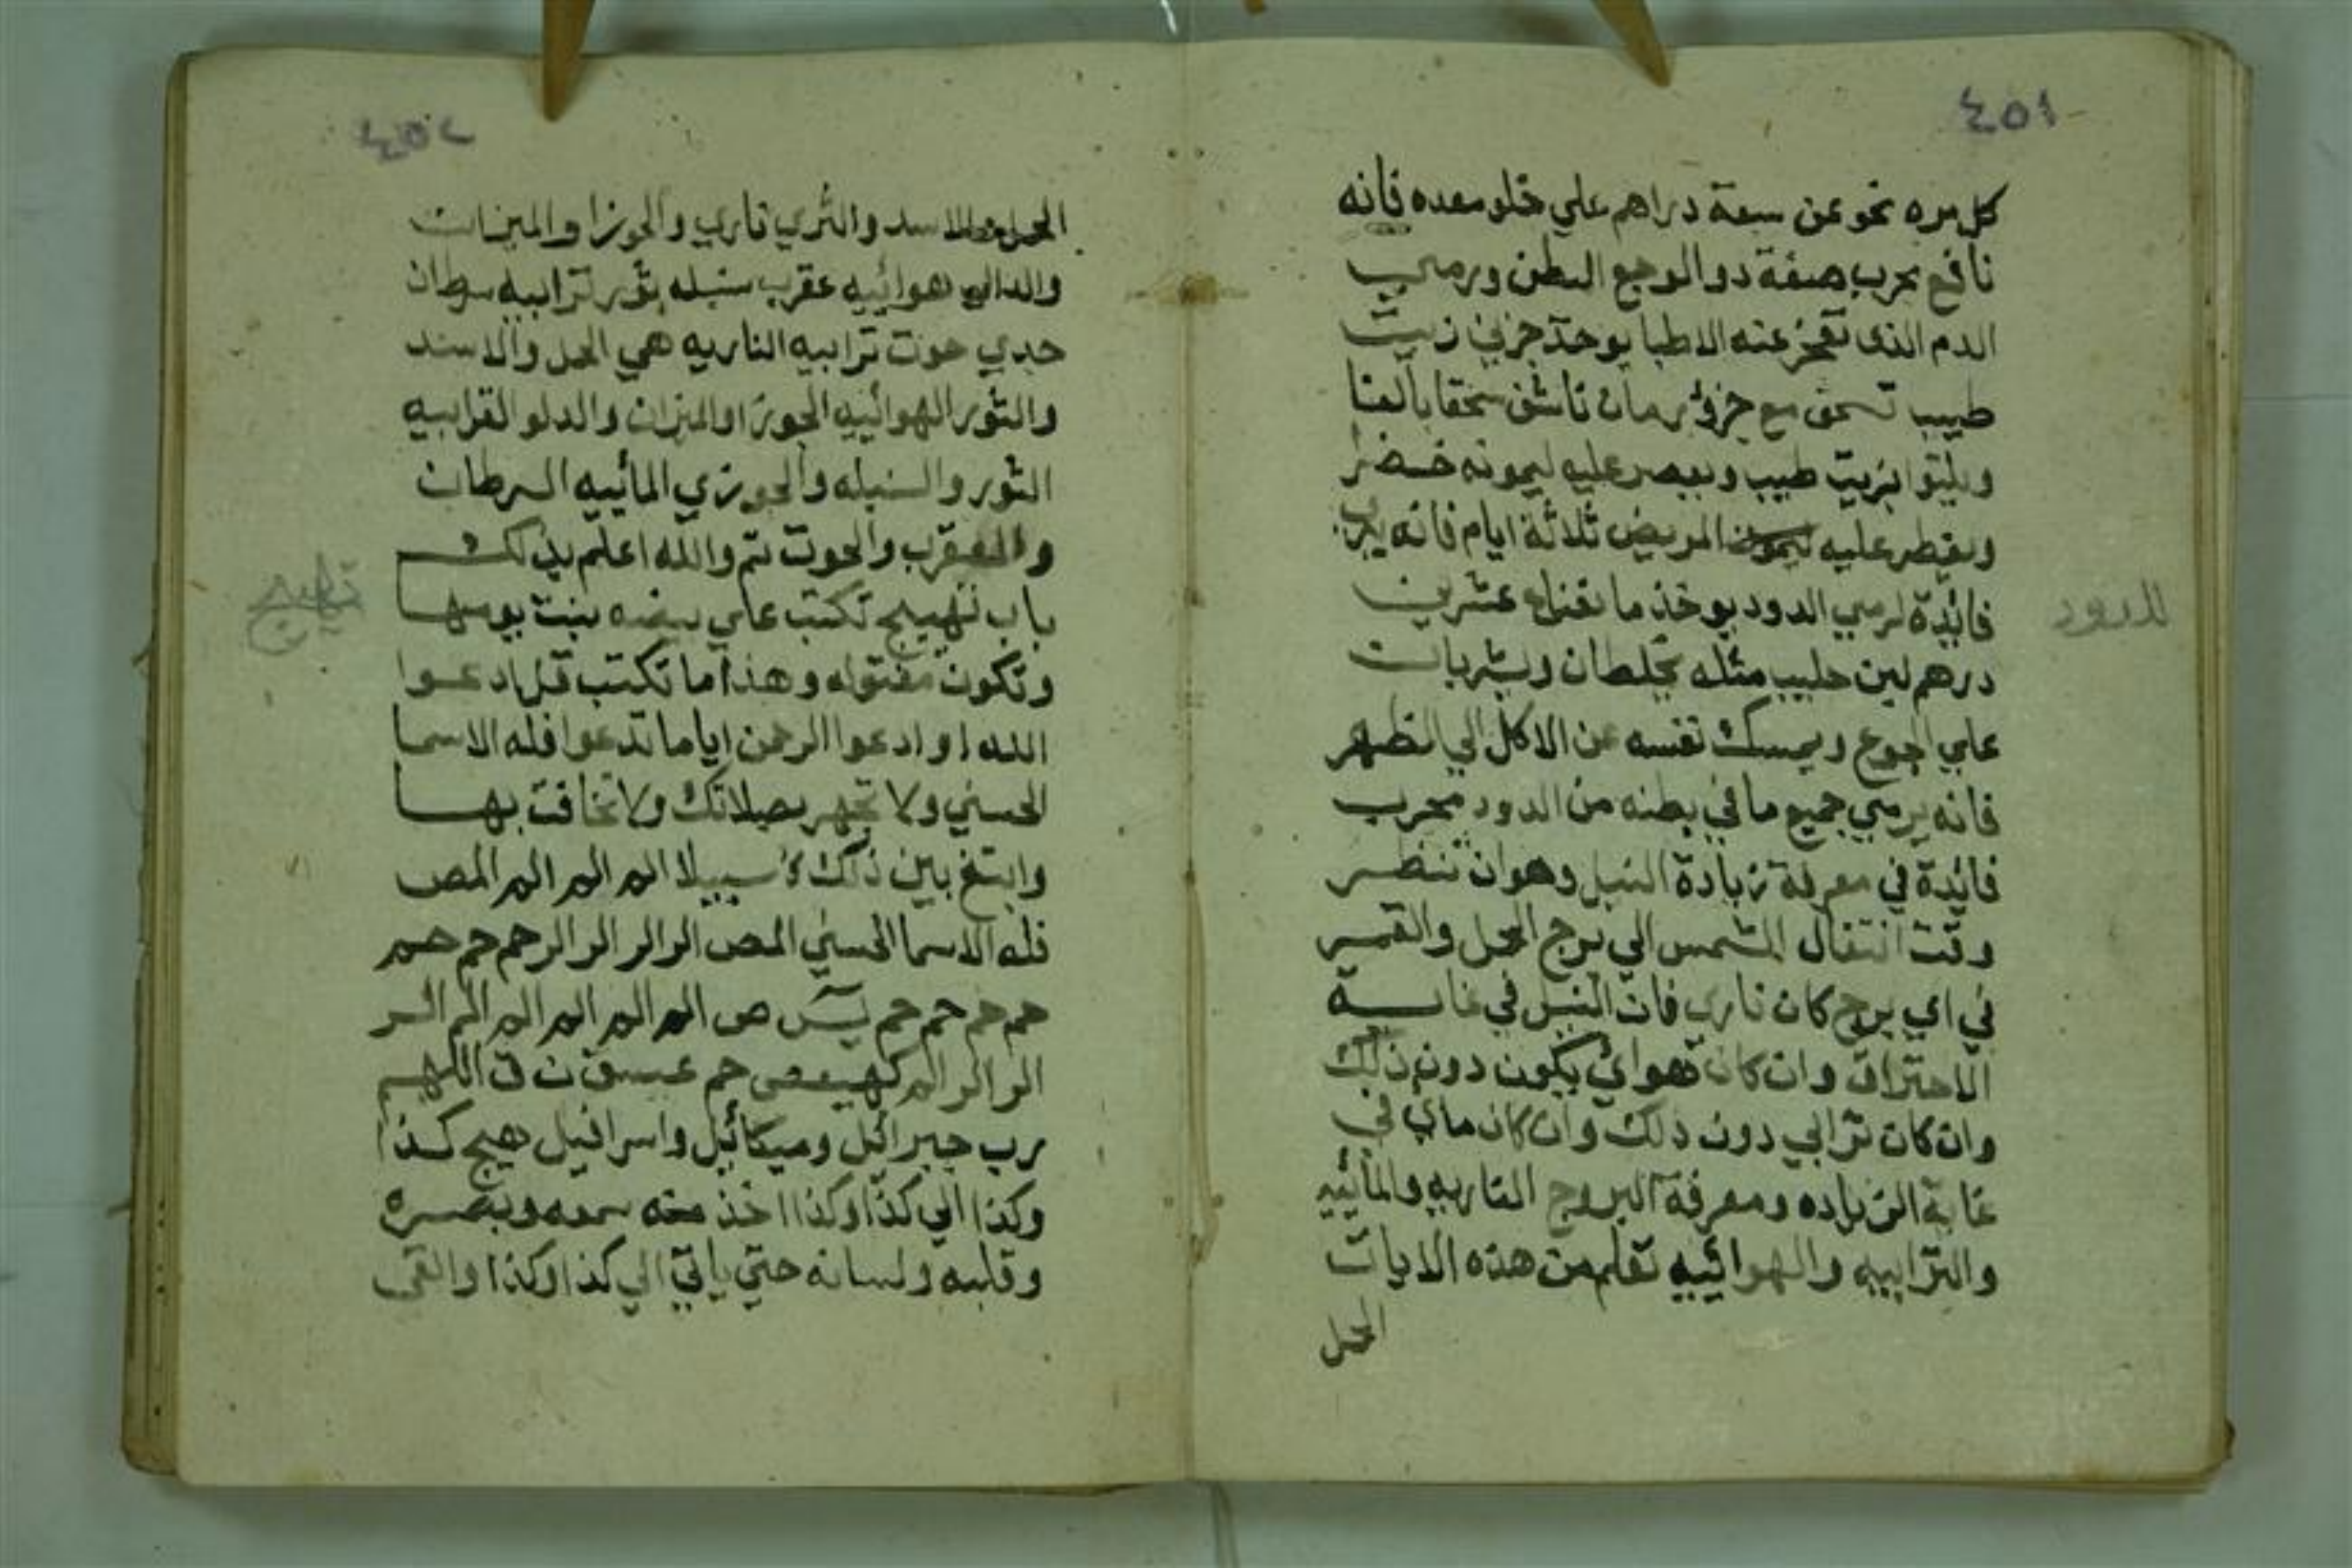 ٤٥١
كل مره نحو عن سبعة دراهم علي خلو معده فانه
نافع مجرب صفة دوا لوجع البطن ورمي
الدم الذي تعجز عنه الاطبا يوخذ جزئ زيت
طيب تسحق مع جزؤ رمان ناشف سحقا بالغا
ويليتوا بزيت طيب ويعصر عليه ليمونه خضرا
ويفطر عليه المريض ثلاثة ايام فانه
فائدة لرمي الدود يوخذ ماء عشرين
درهم لبن حليب مثله يخلطان ويشربات
علي الجوع ويمسك نفسه عن الاكل الي الظهر
فانه يرمي جميع ما في بطنه من الدود مجرب
فائدة في معرفة زيادة النيل وهو ان تنظر
وقت انتقال الشمس الي برج الحمل والقمر
في اي برج كان ناري فان النيل في غاية
الاحتراق وان كان هوائ يكون دون ذلك
وان كان ترابي دون ذلك وان كان ماي في
غاية الزياده ومعرفة البروج الناريه والمائييه
والترابييه والهوائييه تعلم من هذه الابيات
الحمل
للدود
٤٥٢
الحمل والاسد والثري ناري والجوزا والميزات
والدالي هوائييه عقرب سنبله ثور ترابييه سرطان
جدي حوت ترابيه الناريه هي الحمل والاسد
والثور الهوائييه الجوزا والميزان والدلو الترابييه
الثور والسنبله والجوزي المائييه السرطان
والعقرب والحوت تم والله اعلم بذلك
باب تهييج تكتب علي بيضه بنت يومها
وتكون مفتوله وهذا ما تكتب قل ادعوا
الله او ادعوا الرحمن اياما تدعوا فله الاسما
الحسني ولا تجهر بصلاتك ولا تخافت بها
وابتغ بين ذلك سبيلا الم الم الم المص
فله الاسما الحسني المص الر الر الر الر حم حم حم
حم حم حم حم يس ص الم الم الم الم الم الر
الر الر الم كهيعص حم عسق ن ق اللهم
رب جبرائل وميكائيل واسرافيل هيج كذا
وكذا الي كذا وكذا اخذ منه سمعه وبصره
وقلبه ولسانه حتي ياتي الي كذا وكذا والقي
تهييج